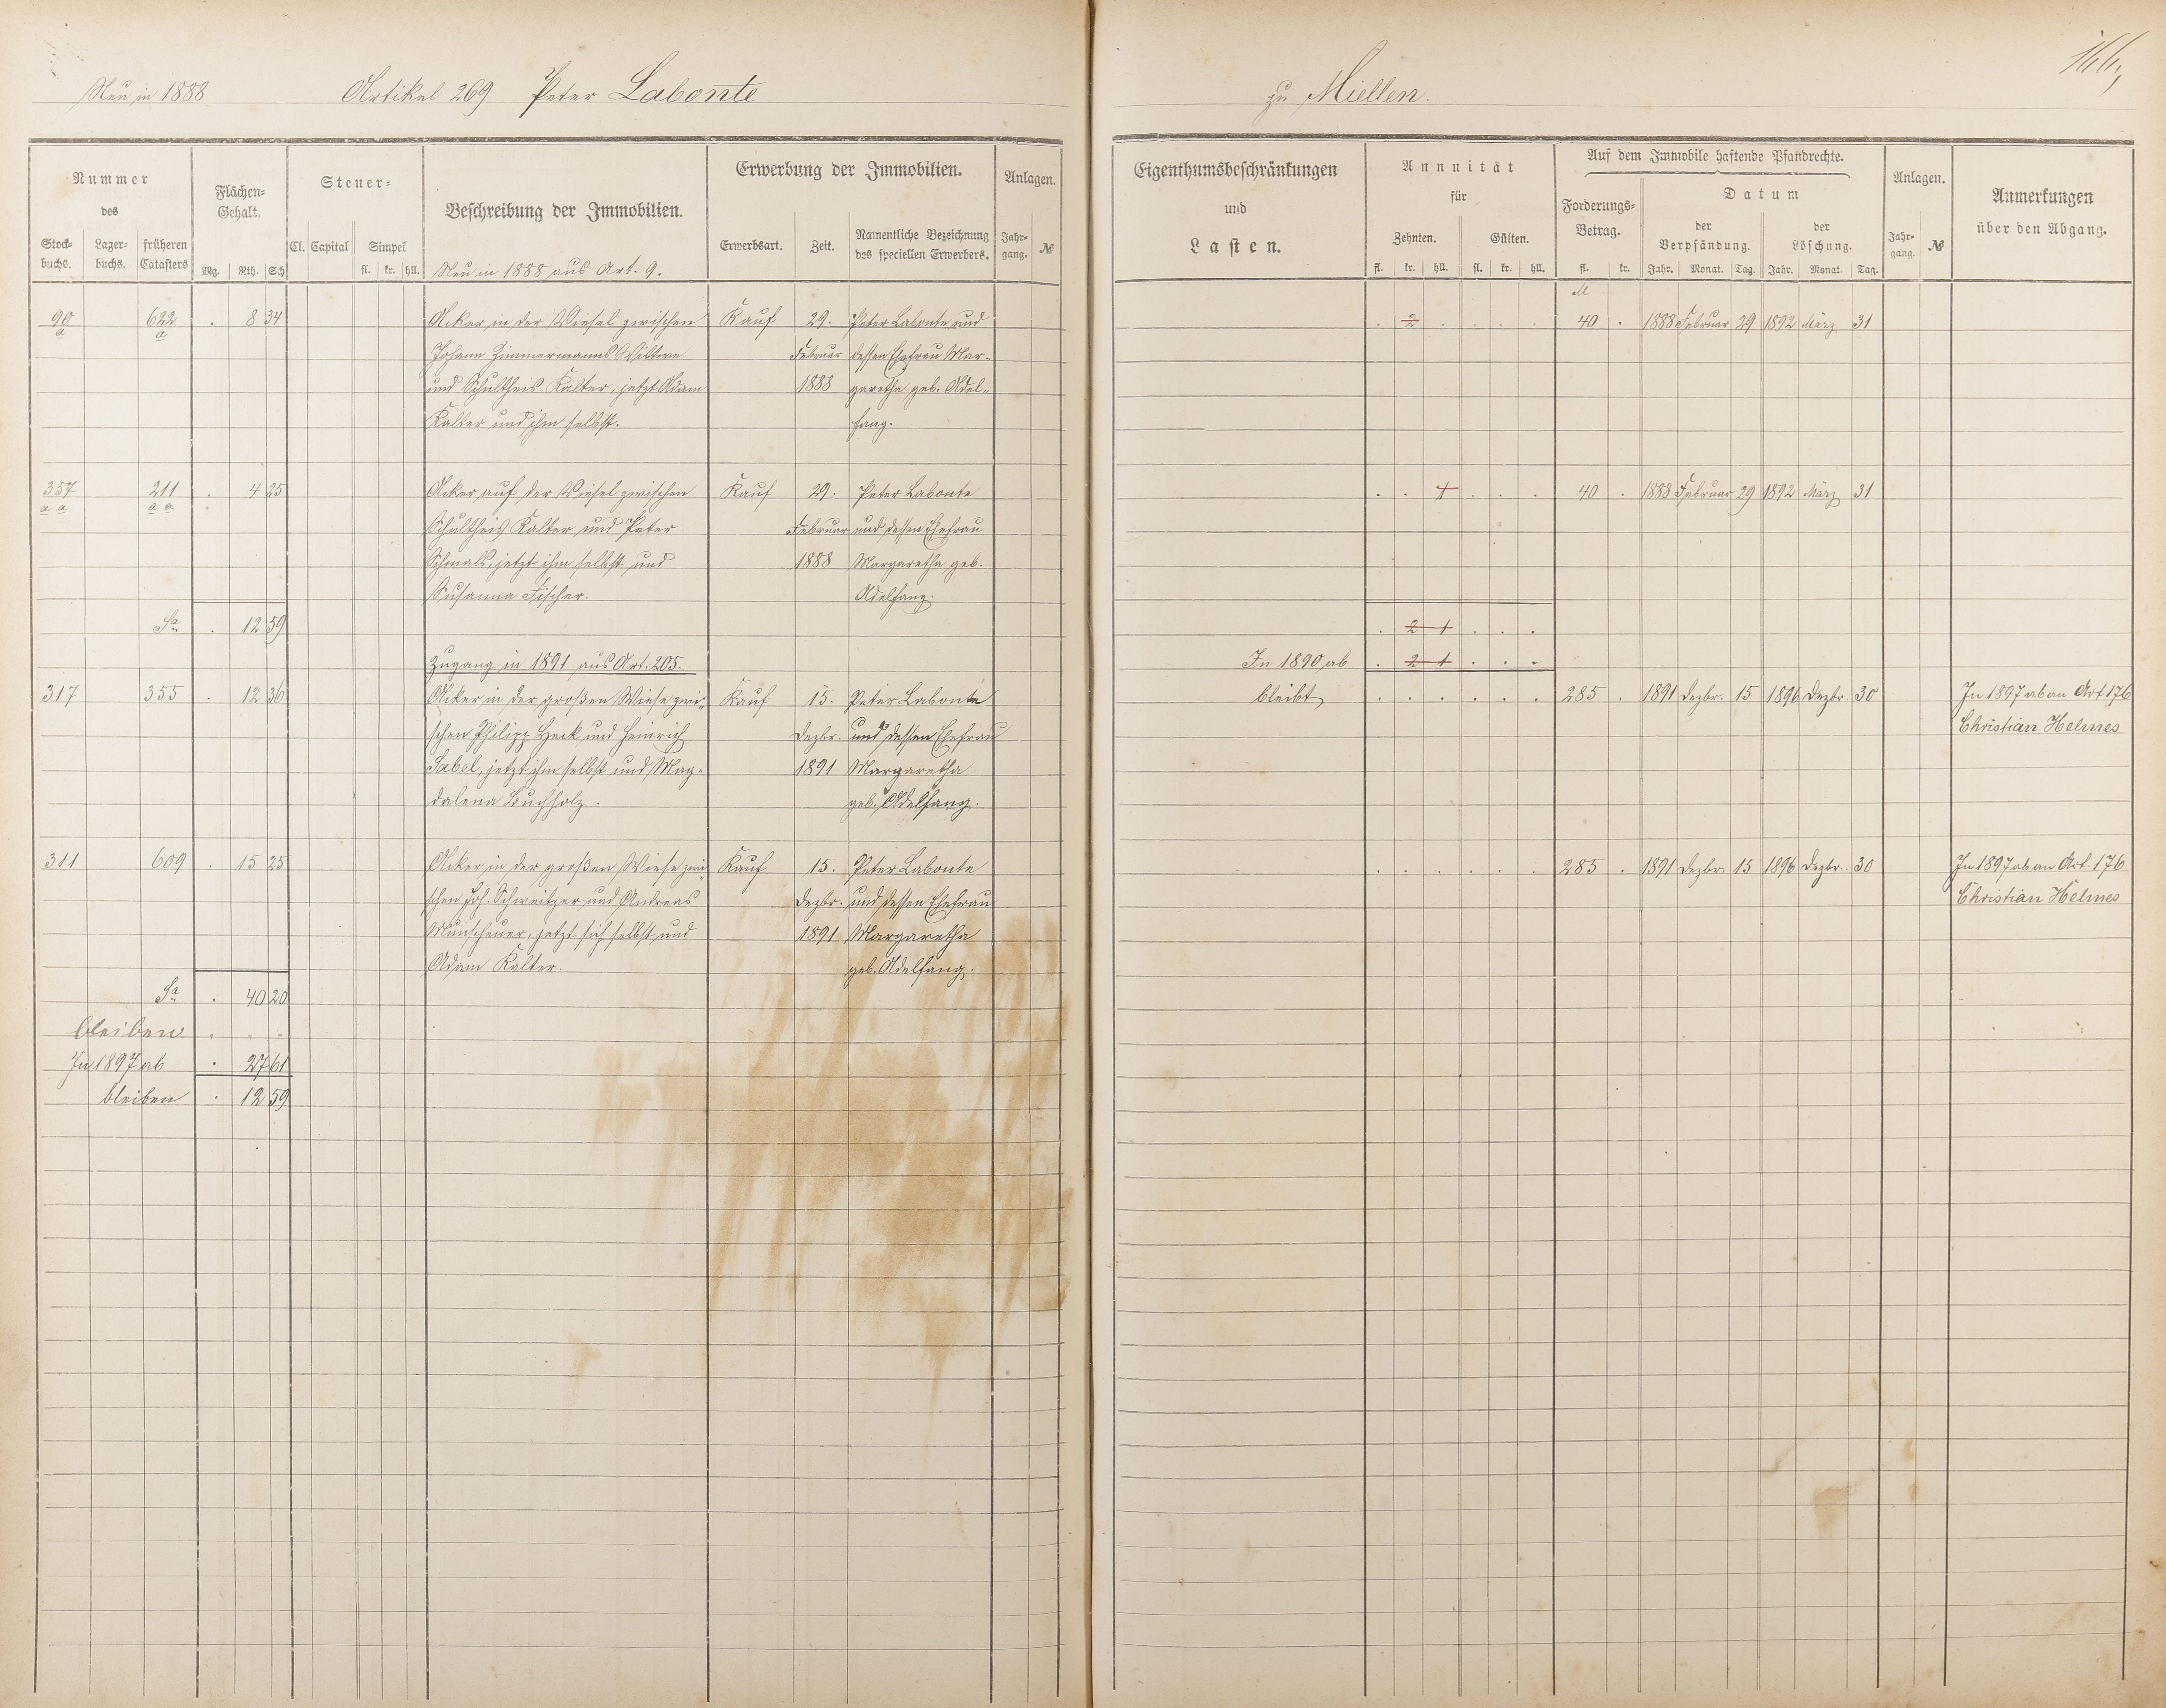 Neu in 1888 Artikel 269 Peter Labonte zu Miellen.
Nummer des
Stock-buchs. Lager-buchs. früheren Catasters
Flächen-Gehalt.
Mg. Rth. Sch
Steuer-
Cl. Capital Simpel
fl. kr. hll.
Beschreibung der Immobilien.
Erwerbung der Immobilien.
Erwerbsart. Zeit. Namentliche Bezeichnung des speciellen Erwerbers.
Anlagen.
Jahr-gang. №
Eigenthumsbeschränkungen
und
Lasten.
Annuität
für
Zehnten. Gülten.
fl. kr. hll. fl. kr. hll.
Auf dem Immobile haftende Pfandrechte.
Forderungs-Betrag.
fl. kr.
Datum
der Verpfändung. der Löschung.
Jahr. Monat. Tag. Jahr. Monat. Tag.
Anlagen.
Jahr-gang. №
Anmerkungen
über den Abgang.
Neu in 1888 aus Art. 9.
M
90 622 . 8 34 Acker in der Wiesel zwischen Kauf 29. Peter Labonte und . 2 . . . . 40 . 1888 Februar 29 1892 März 31
a a Johann Zimmermanns Wittwe Februar dessen Ehefrau Mar-
und Schultheis Kalter, jetzt Adam 1888 garetha geb. Adel-
Kalter und ihm selbst. fang.
357 211 . 4 25 Acker auf der Wiesel zwischen Kauf 29. Peter Labonte . . 1 . . . 40 . 1888 Februar 29 1892 März 31
a a a a Schultheis Kalter und Peter Februar und dessen Ehefrau
Schmals, jetzt ihm selbst und 1888 Margaretha geb.
Susanna Fischer. Adelfang.
Sa . 12 59 . 2 1 . . .
Zugang in 1891 aus Art. 205. In 1890 ab . 2 1 . . .
317 355 . 12 36 Acker in der großen Wiese zwi- Kauf 15. Peter Labonte bleibt . . . . . . 285 . 1891 Dezbr. 15 1896 Dezbr. 30 In 1897 ab an Art 176
schen Philipp Heck und Heinrich Dezbr. und dessen Ehefrau Christian Helmes
Sabel, jetzt ihm selbst und Mag- 1891 Margaretha
dalena Buchholz. geb. Adelfang.
311 609 . 15 25 Acker in der großen Wiese zwi- Kauf 15. Peter Labonte . . . . . . 285 . 1891 Dezbr. 15 1896 Dezbr. 30 In 1897 ab an Art. 176
schen Joh. Schweitzer und Andreas Dezbr. und dessen Ehefrau Christian Helmes
Munscheuer, jetzt sich selbst und 1891 Margaretha
Adam Kalter. geb. Adelfang.
Sa . 40 20
bleiben . . .
In 1897 ab . 27 61
bleiben . 12 59